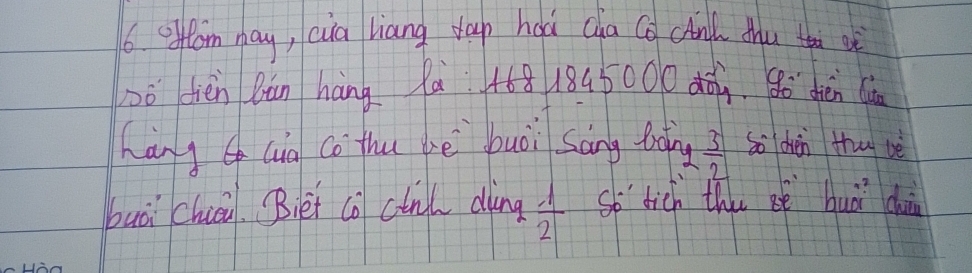 6. Hôm nay, cửa hàng tạp hoá của Cô Ánh thu về
số tiền bán hàng là: 1845000 đồng. Số tiền bán
hàng của cô thu về buổi sáng bằng 3/2 số tiền thu về
buổi chiều. Biết cô Ánh dùng 1/2 số tiền thu về buổi chiều